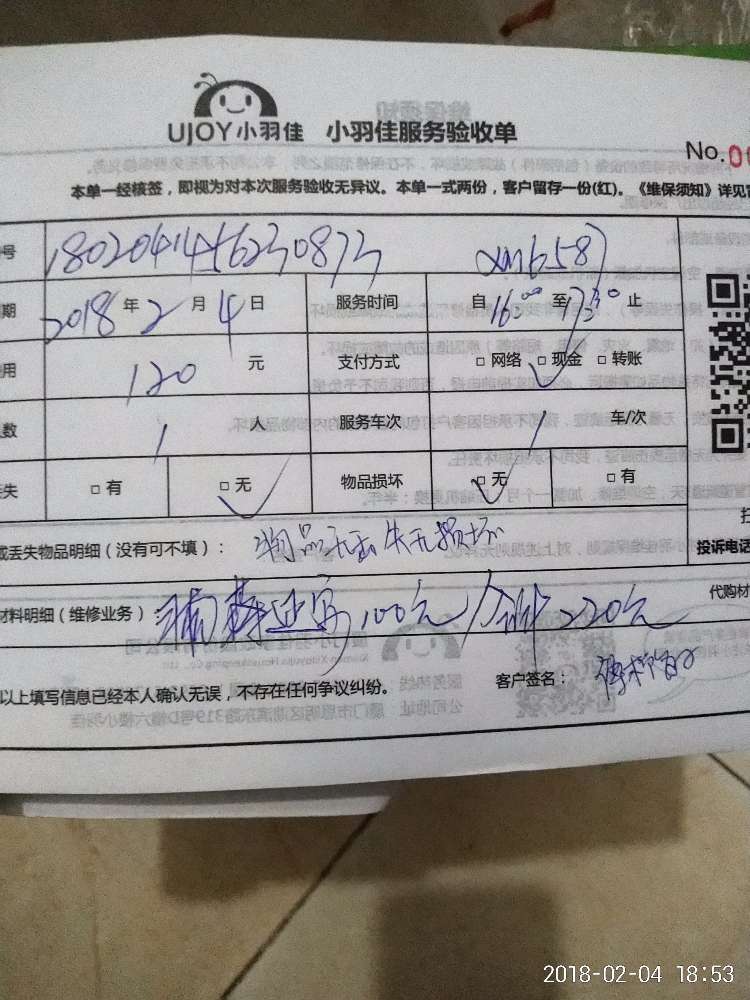 UJOY小羽佳 小羽佳服务验收单
No.0
本单一经核签，即视为对本次服务验收无异议。本单一式两份，客户留存一份(红)。《维保须知》详见
号 1802041456230873 XM6587
期 2018年2月4日 服务时间 自16:00至17:30止
用 120元 支付方式 □网络 □现金 □转账
数 1人 服务车次 1 车/次
失 □有 □无 物品损坏 □无 □有
或丢失物品明细（没有可不填）： 物品无丢失无损坏
投诉电话
材料明细（维修业务） 100元/合计220元
代购材
以上填写信息已经本人确认无误，不存在任何争议纠纷。 客户签名：
2018-02-04 18:53